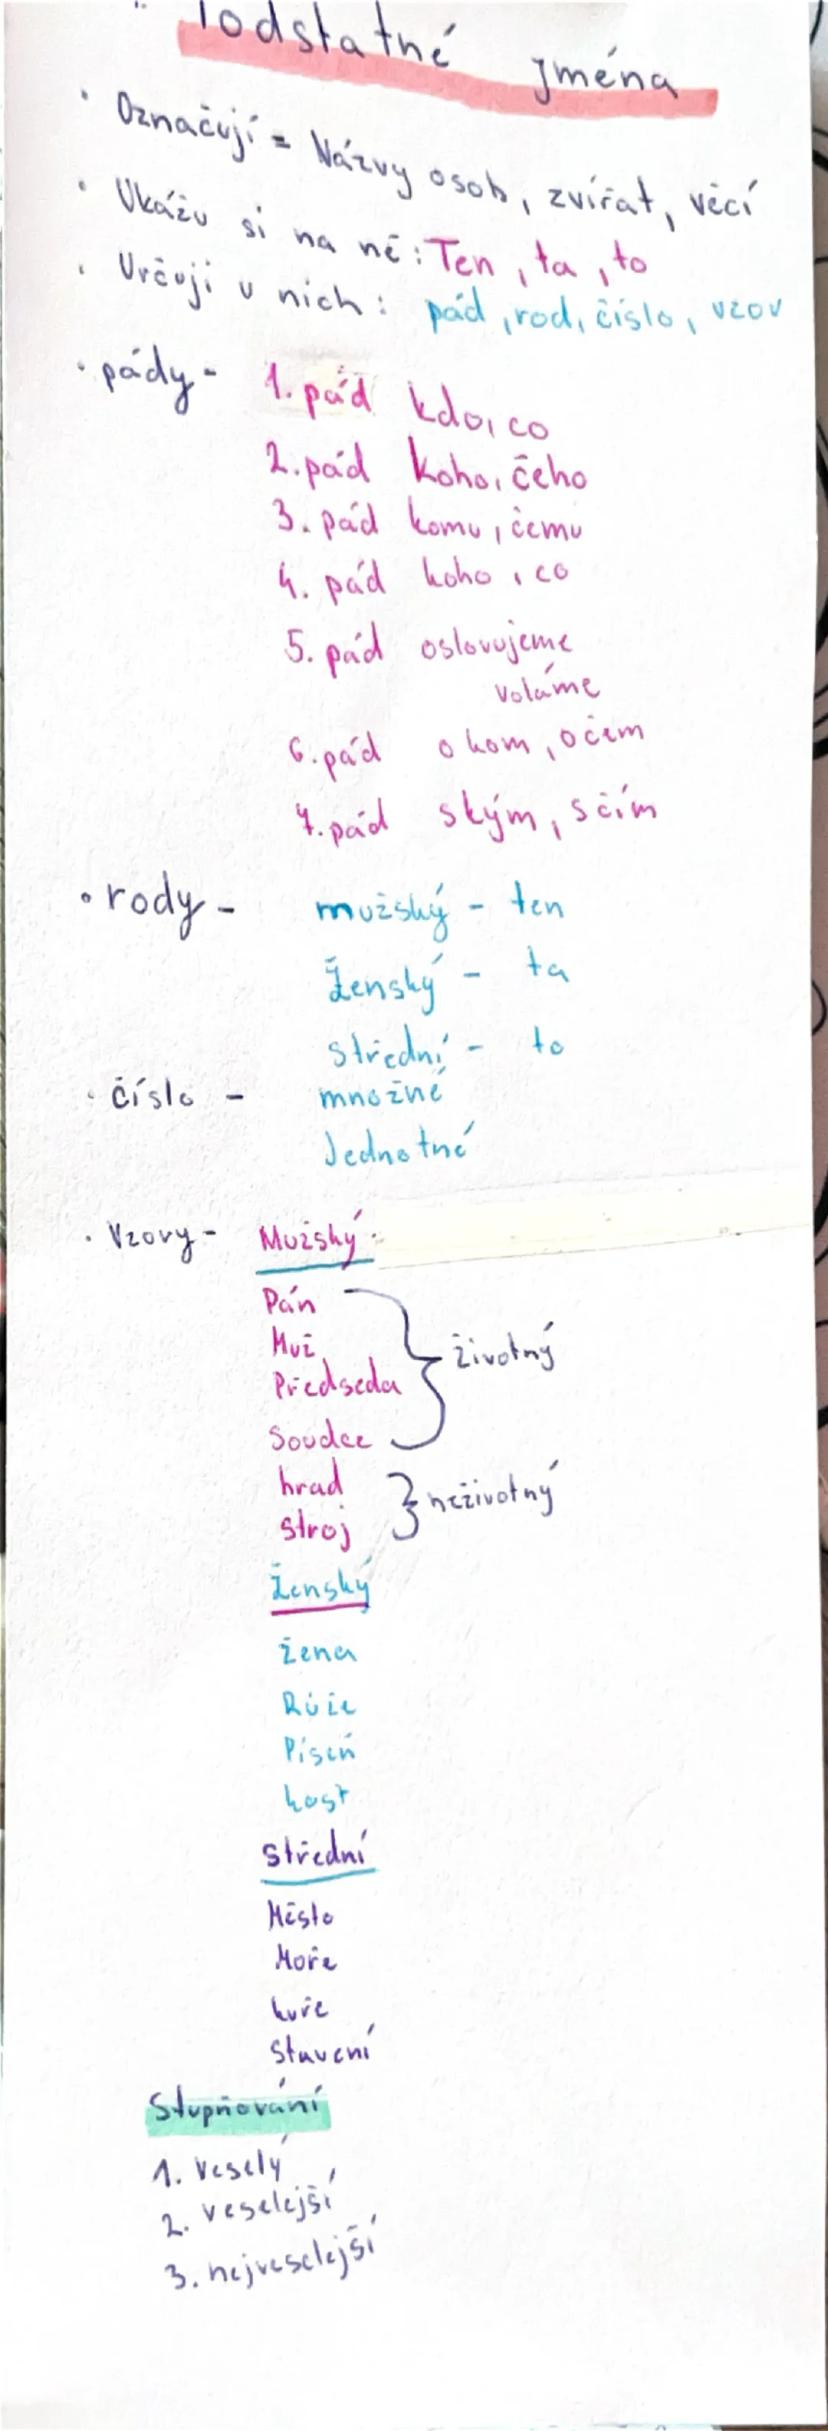 Podstatné jména
• Označují = Názvy osob, zvířat, věcí
• Ukážu si na ně: Ten, ta, to
• Určuji u nich: pád, rod, číslo, vzov
• pády - 1. pád kdo, co
2. pád koho, čeho
3. pád komu, čemu
4. pád koho, co
5. pád oslovujeme
voláme
6. pád o kom, o čem
7. pád s kým, s čím
• rody - mužský - ten
Ženský - ta
střední - to
• číslo - množné
Jednotné
• Vzovy - Mužský
Pán
Muž
Předseda
Soudce
životný
hrad
stroj
neživotný
Ženský
žena
Růže
Píseň
kost
střední
Město
Moře
kuře
Stavení
Stupňování
1. veselý
2. veselejší
3. nejveselejší